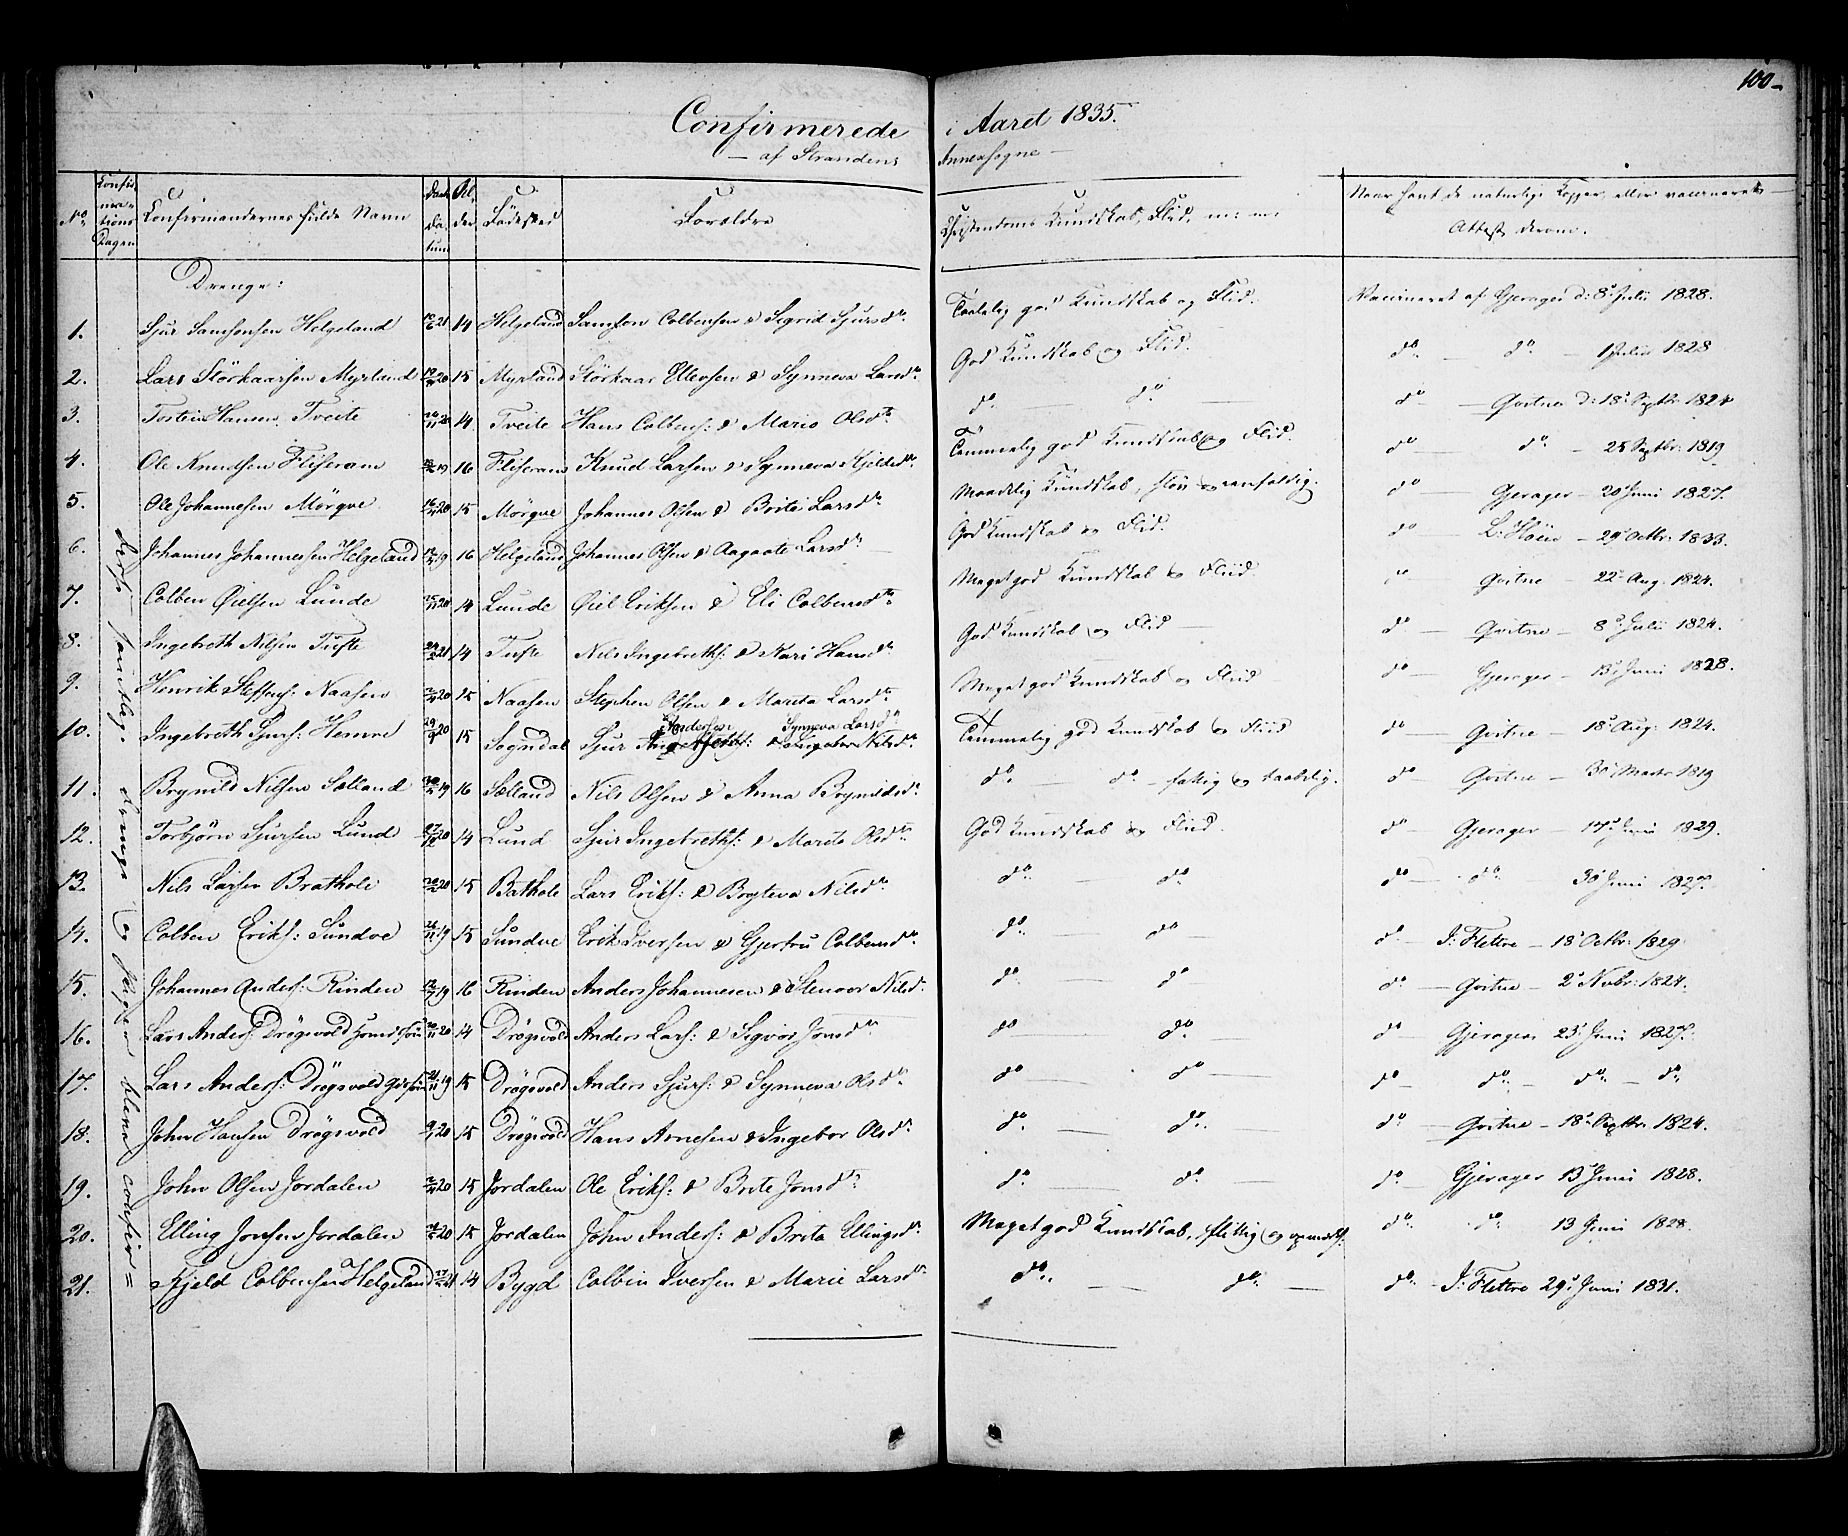 100
Confirmerede i Aaret 1835.
— af Strandens Annexsogne —
No. Confirmations Dagen Konfirmandernes fulde Navn Daabs Datum Alder Fødested Forældre Christendoms Kundskab, Flid, m: m: Naar havt de naturlige Kopper, eller vaccineret Attest derom.
Drenge:
1. Sjur Samsonsen Helgeland 21 14 Helgeland Samson Colbensen & Sigrid Sjursdr. Taalelig god Kundskab og Flid. Vaccineret af Gjerager d: 8de Julii 1828.
2. Lars Störkaarsen Myrland 20 15 Myrland Störkaar Ellevsen & Synneva Larsdr. God Kundskab og Flid. do — do. 1 Julii 1828
3. Tostein Hansen Tveite 20 14 Tveite Hans Colbens: & Marie Olsdr. do. — do. do — Qvitne d: 18de Septbr. 1824
4. Ole Knudsen Fliseram 19 16 Fliseram Knud Larsen & Synneva Kjeldsdr. Temmelig god Kundskab og Flid. do — do. — 25 Septbr: 1819
5. Ole Johannesen Mörqve 20 15 Mörqve Johannes Olsen & Brite Larsdr. Maadelig Kundskab, sløv og eenfoldig. do — Gjerager — 20 Juni 1827.
6. Johannes Johannesen Helgeland 19 16 Helgeland Johannes Olsen & Aagaate Larsdr. God Kundskab og Flid. do — L: Höen — 29 Octbr: 1833.
7. Colben Øielsen Lunde 20 14 Lunde Øiel Eriksen & Eli Colbensdr. Meget god Kundskab & Fliid do — Qvitne — 22 Aug. 1824.
8. Ingebreth Nilsen Tufte 21 14 Tufte Nils Ingebreths: & Kari Hansdr. God Kundskab og Fliid — do — Qvitne — 8de Julii 1824.
9. Henrik Steffens: Naasen 20 15 Naasen Stephen Olsen & Marita Larsdr. Meget god Kundskab & Fliid do — Gjerager — 13 Juni 1828.
10. Ingebreth Sjurs: Hemre 20 15 Sogndal Sjur Andersen & Synneva Larsdr. Temmelig god Kundskab & Fliid do — Qvitne — 18de Aug: 1824.
11. Brynild Nilsen Sælland 19 16 Sælland Nils Olsen & Anna Brynildsdr. do. — do — fattig og taabelig. do — Qvitne — 30 Marts 1819
12. Torbjørn Sjursen Lund 20 14 Lund Sjur Ingebreths: & Marite Olsdr. God Kundskab og Fliid. do — Gjerager — 17de Juni 1829.
13. Nils Larsen Brathole 20 15 Bathole Lars Eriks: & Bryteva Nilsdr. do. do. do — do. 30 Juni 1827.
14. Colben Eriks: Sundve 19 15 Sundve Erik Iversen & Gjertru Colbensdr. do. do — do — I: Flettre — 18 Octbr: 1829
15. Johannes Anders: Rinden 19 16 Rinden Anders Johannesen & Stenvor Nilsdr. do — do do — Qvitne — 2 Novbr: 1824.
16. Lars Anders: Drögsvold 20 14 Drögsvold Anders Lars: & Sigvor Jonsdr. do — do. do — Gjerager 25 Juni 1827.
17. Lars Anders: Drögsvold 19 15 Drögsvold Anders Sjurs: & Synneva Olsdr. do — do — do — do. — do. — do.
18. John Hansen Drögsvold 20 15 Drögsvold Hans Arnesen & Ingebor Olsdr. do. — do. do — Qvitne — 18de Septbr. 1824.
19. John Olsen Jordalen 20 15 Jordalen Ole Eriks: & Brite Jonsdr. do. — do. — do. — Gjerager 13 Juni 1828.
20. Elling Jonsen Jordalen 20 15 Jordalen John Anders: & Brita Ellingsdr. Meget god Kundskab, flittig og opmærks: do. do. 13 Juni 1828.
21. Kjeld Colbensen Helgeland 21 14 Bygd Colbin Iversen & Marie Larsdr. do. — do. — do. — I: Flettre 29de Juni 1831.
Disse samtlig. Drenge og Piger blevne confir=